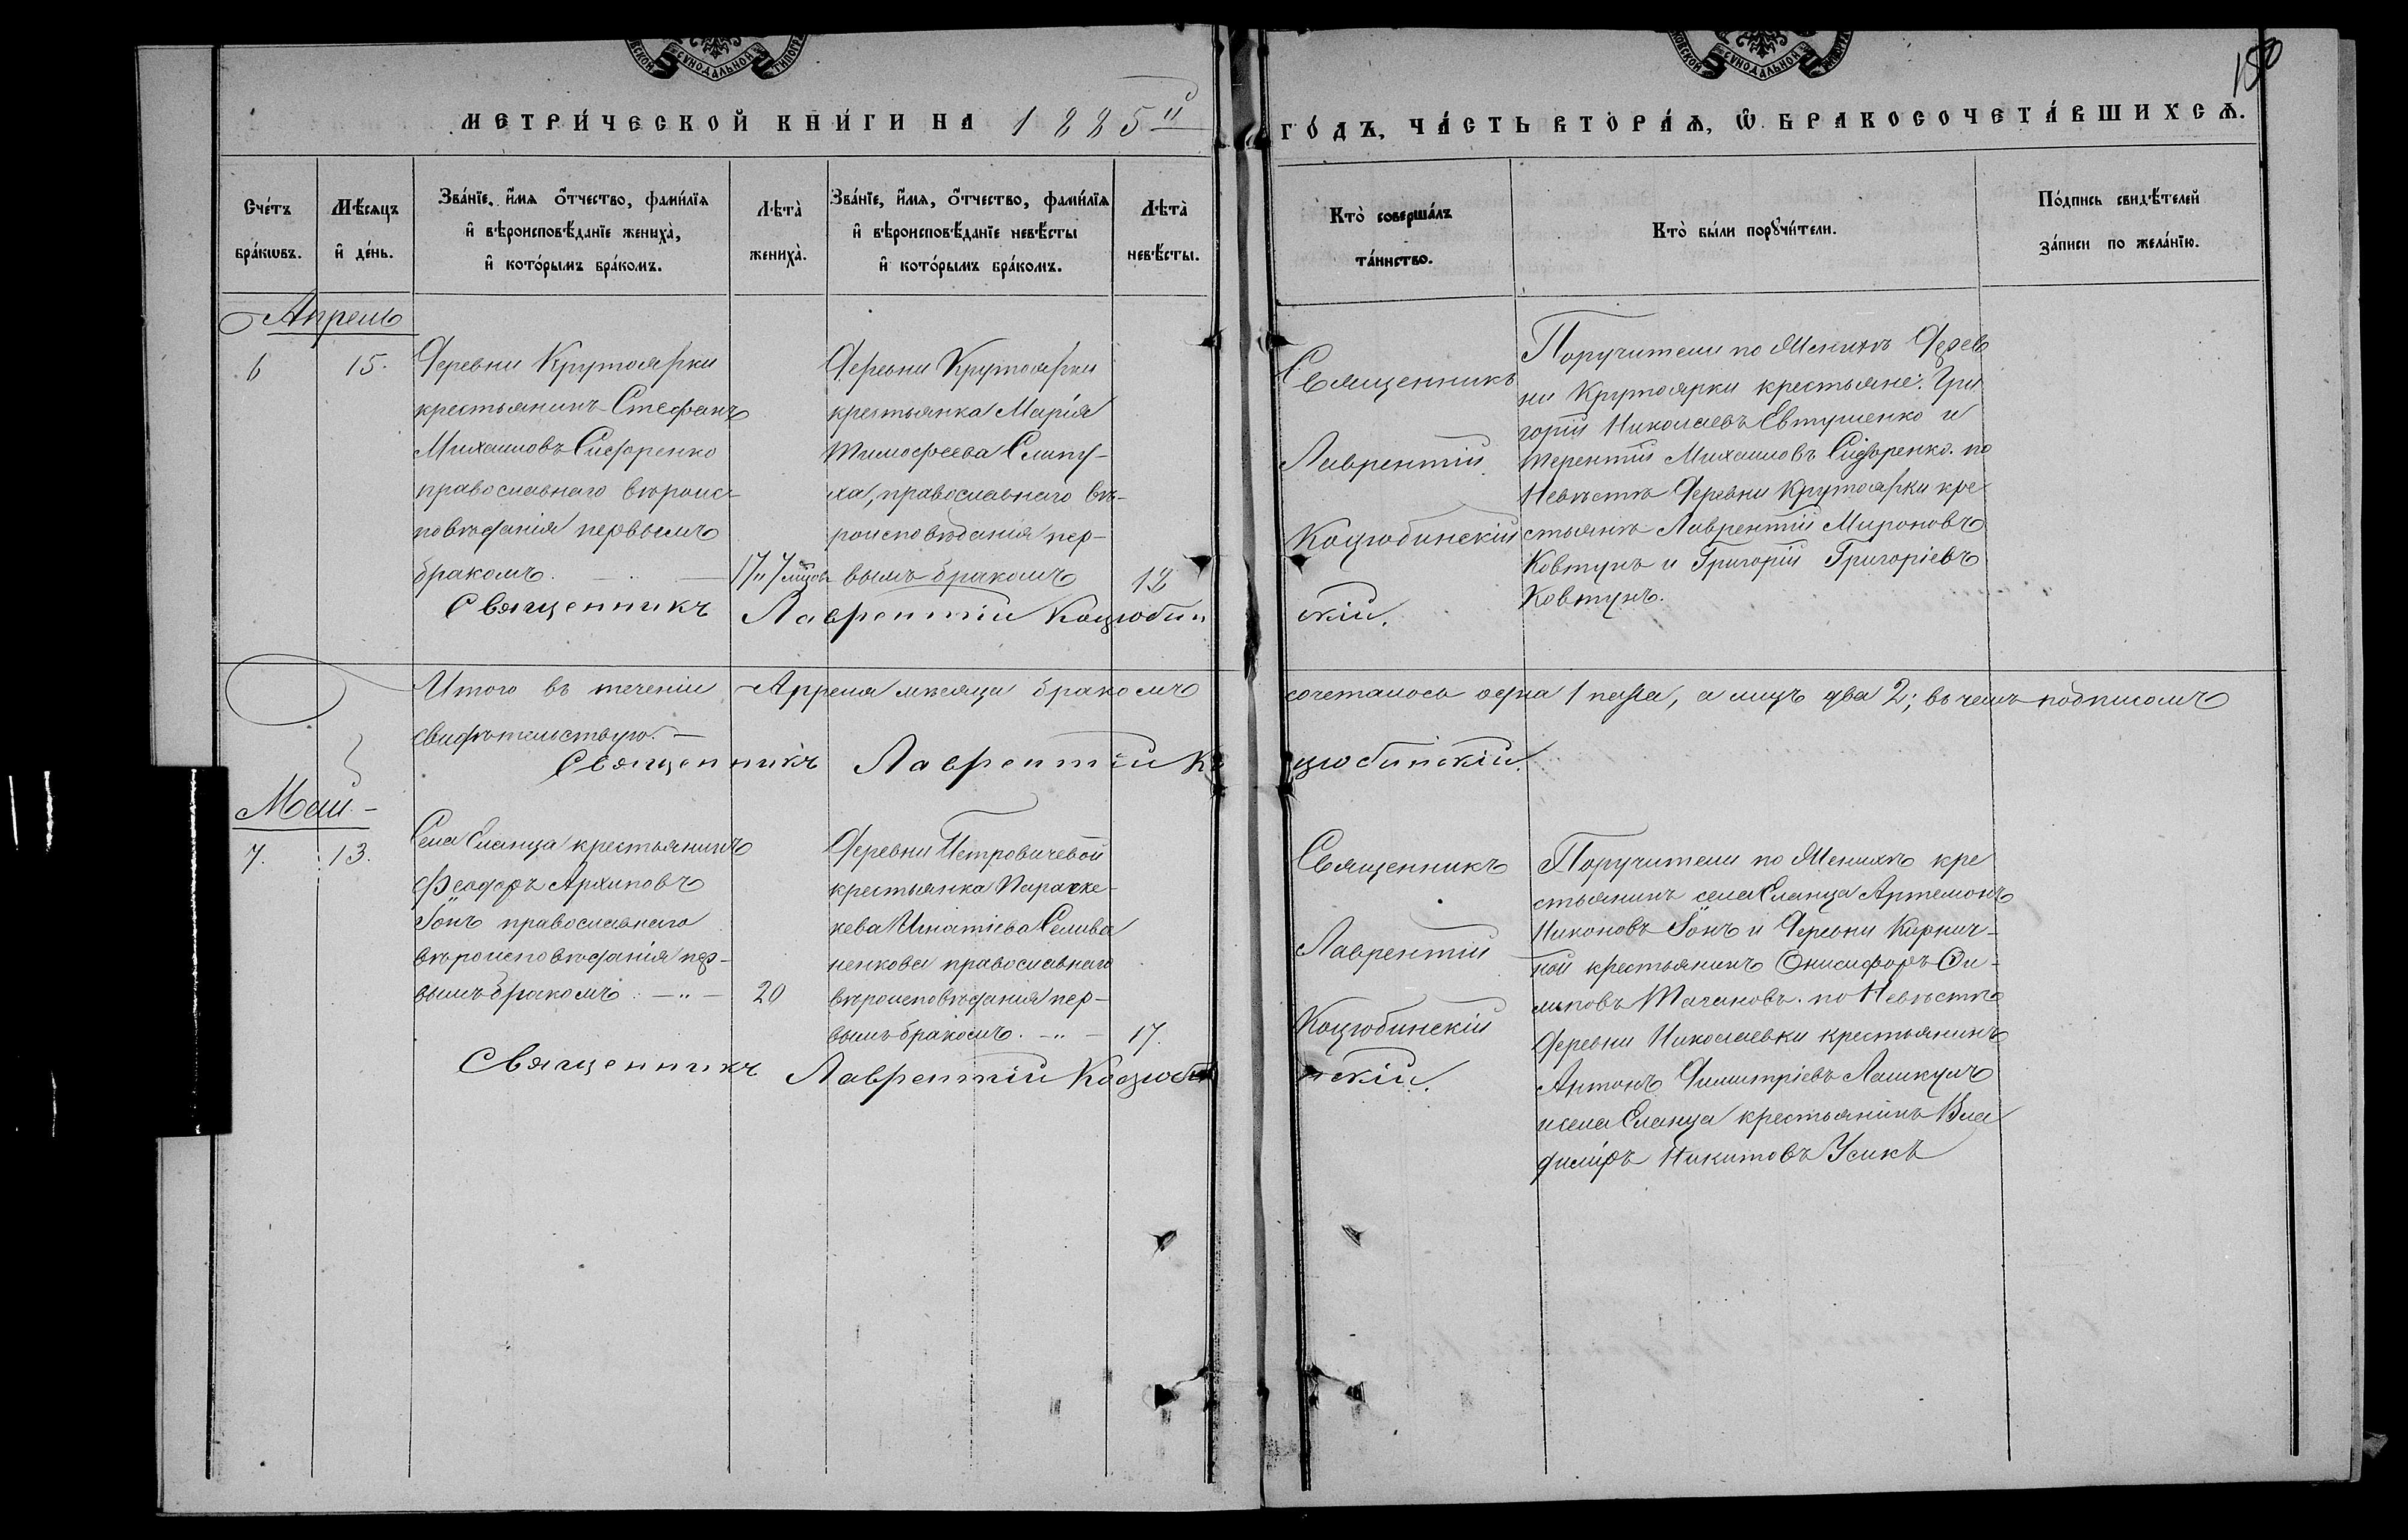 МЕТРИ́ЧЕСКОЙ КНИ́ГИ НА 1885й
ГО́ДЪ, ЧА́СТЬ ВТОРА́Ѧ, Ѡ БРАКОСОЧЕТА́ВШИХСѦ.
Сче́тъ бра́кѡвъ.
Мѣ́сяцъ и҆ де́нь.
Зва́нїе, и҆́мя ѻ҆́тчество, фами́лїя и҆ вѣроисповѣ́данїе жениха̀, и҆ кото́рымъ бра́комъ.
Лѣта̀ жениха̀.
Зва́нїе, и҆́мя, ѻ҆́тчество, фами́лїя и҆ вѣроисповѣ́данїе невѣ́сты и҆ кото́рымъ бра́комъ.
Лѣта̀ невѣ́сты.
Кто̀ соверша́лъ та́инство.
Кто̀ бы́ли порꙋчи́тели.
По́дпись свидѣ́телей за́писи по жела́нїю.
Апрель
6
15.
Деревни Крутоярки
крестьянинъ Стефанъ
Михаиловъ Сидоренко
православнаго вѣроис-
повѣданія первымъ
бракомъ.
17
Деревни Крутоярки
крестьянка Марія
Тимофеева Слипу-
ха, православнаго вѣ-
роисповѣданія пер-
вымъ бракомъ
18
Священникъ
Лаврентій
Коцюбинскій
Поручители по Женихѣ Дерев
ни Крутоярки крестьяне: Гри
горій Николаевъ Евтушенко и
Терентій Михаиловъ Сидоренко. по
Невѣстѣ Деревни Крутоярки кре
стьянѣ Лаврентій Мироновъ
Ковтунъ и Григорій Григоріевъ
Ковтунъ.
Священникъ Лаврентій Коцюбин
скій.
Итого въ теченіи Апреля мѣсяца бракомъ сочеталось одна 1 пара, а лицъ два 2; въ чемъ подписомъ
свидѣтельствую.—
Священникъ Лаврентій Коцюбинскій.
Май—
7.
13.
Села Еланца крестьянинъ
Феодоръ Архиповъ
православнаго
вѣроисповѣданія пер-
вымъ бракомъ
20
Деревни Петровичевой
крестьянка Параске-
кева Игнатіева Селива
ненкова православнаго
вѣроисповѣданія пер-
вымъ бракомъ.
17.
Священникъ
Лаврентій
Коцюбинскій
Поручители по Женихѣ кре
стьянинъ села Еланца Артемонъ
Никоновъ и Деревни Кирпич-
ной крестьянинъ Онисифоръ
по Невѣстѣ
Деревни Николаевки крестьянинъ
Антонъ Димитріевъ
и села Еланца крестьянинъ Вла
диміръ Никитовъ Усикъ
Священникъ Лаврентій Коцюби
нскій.